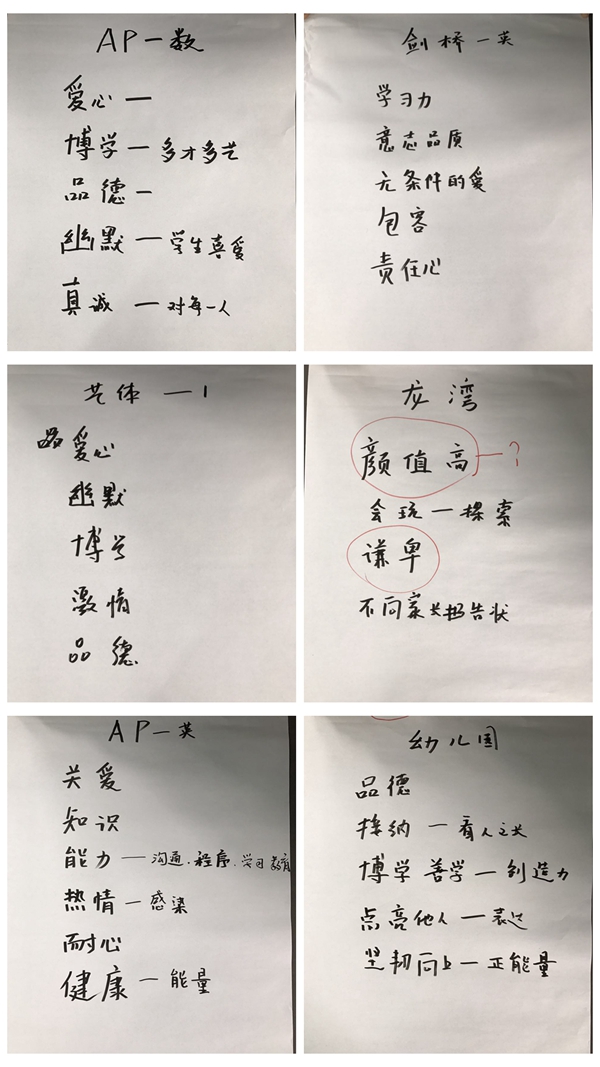 AP一数
爱心一
博学一多才多艺
品德一
幽默一学生真爱
真诚一对每一人
剑桥一英
学习力
意志品质
无条件的爱
包容
责任心
艺体一1
爱心
幽默
博学
激情
品德
龙湾
颜值高一?
会玩一探索
谦卑
不向家长打告状
AP一英
关爱
知识
能力一沟通、程序、学习教育
热情一感染
耐心
健康一能量
幼儿园
品德
接纳一看人之长
博学善学一创造力
点亮他人一表达
坚韧向上一正能量